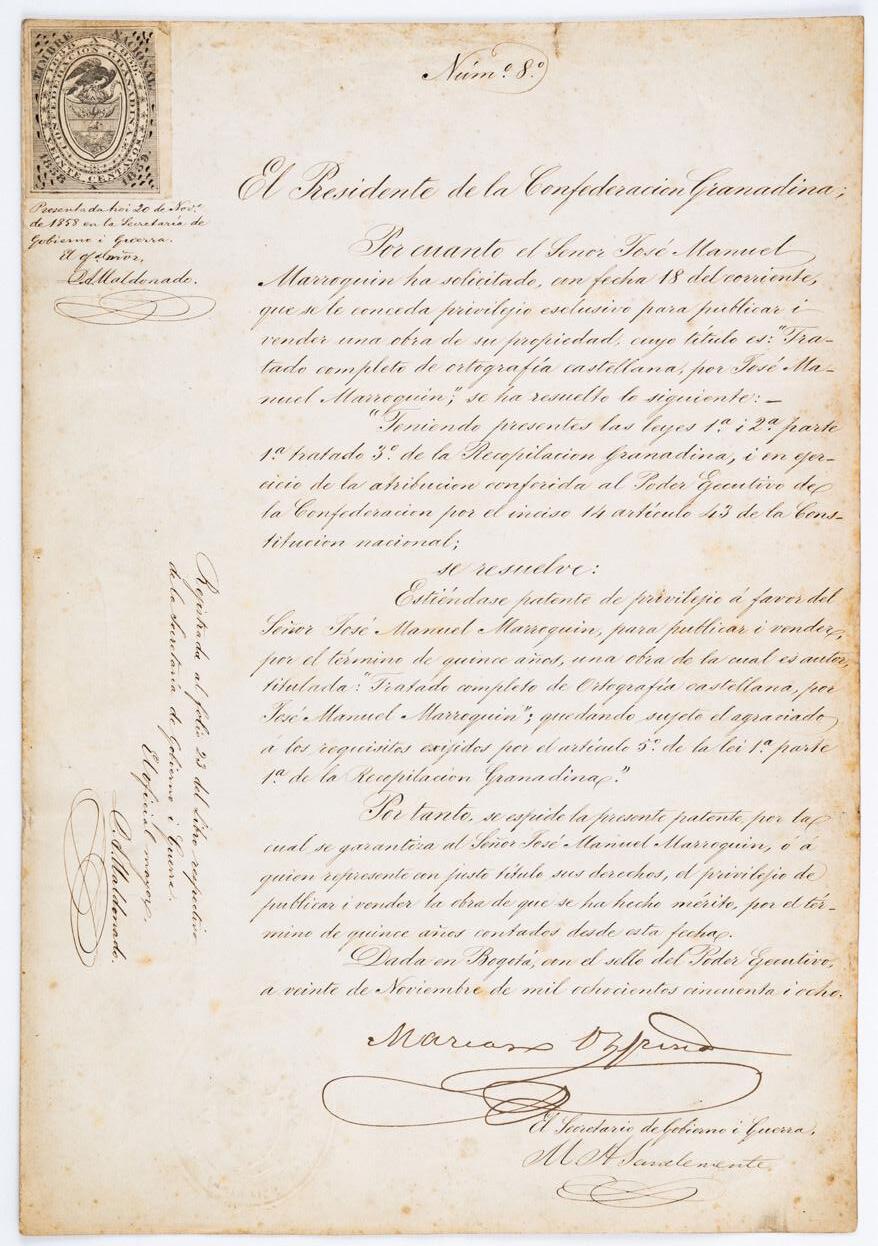 TIMBRE NACIONAL
1858 A 1859
CONFEDERACION GRANADINA
VEINTE CENTAVOS
1858 A 1859.
Núm.º 8.º
Presentada hoi 20 de Nov.e
de 1858 en la Secretaría de
Gobierno i Guerra.
El of.l mōr,
Maldonado.
El Presidente de la Confederacion Granadina;
Por cuanto el Señor José Manuel
Marroquin ha solicitado, con fecha 18 del corriente,
que se le conceda privilejio esclusivo para publicar i
vender una obra de su propiedad, cuyo título es: "Tra-
tado completo de ortografía castellana, por José Ma-
nuel Marroquin", se ha resuelto lo siguiente: —
"Teniendo presentes las leyes 1ª i 2ª parte
1ª tratado 3º de la Recopilacion Granadina, i en ejer-
cicio de la atribucion conferida al Poder Ejecutivo de
la Confederacion por el inciso 14 artículo 43 de la Cons-
titucion nacional;
se resuelve:
Estiéndase patente de privilejio á favor del
Señor José Manuel Marroquin, para publicar i vender,
por el término de quince años, una obra de la cual es autor,
titulada: "Tratado completo de Ortografía castellana, por
José Manuel Marroquin"; quedando sujeto el agraciado
á los requisitos exijidos por el artículo 5º de la lei 1ª parte
1ª de la Recopilacion Granadina."
Por tanto, se espide la presente patente, por la
cual se garantiza al Señor José Manuel Marroquin, ó á
quien represente con justo título sus derechos, el privilejio de
publicar i vender la obra de que se ha hecho mérito, por el tér-
mino de quince años contados desde esta fecha.
Dada en Bogotá, con el sello del Poder Ejecutivo,
a veinte de Noviembre de mil ochocientos cincuenta i ocho.
Mariano Ospina
El Secretario de Gobierno i Guerra,
M A Sanclemente
Rejistrada al fólio 23 del libro respectivo
de la Secretaría de Gobierno i Guerra.
El oficial mayor,
Maldonado.